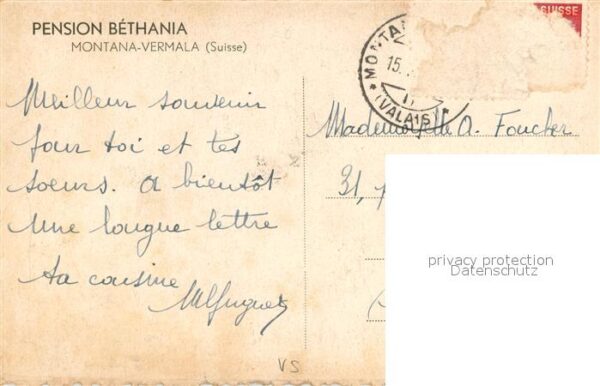 PENSION BÉTHANIA
MONTANA-VERMALA (Suisse)
SUISSE
MONTA
15.
(VALAIS)
Meilleur souvenir
pour toi et tes
soeurs. A bientôt
une longue lettre
ta cousine
Mademoiselle A. Foucher
31,
privacy protection
Datenschutz
VS